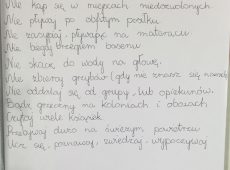 Nie kąp się w miejscach niedozwolonych
Nie pływaj po obfitym posiłku
Nie zasypiaj pływając na materacu
Nie biegaj brzegiem basenu
Nie skacz do wody na główkę.
Nie zbieraj grzybów (gdy nie znasz się
Nie oddalaj się od grupy, lub opiekunów.
Bądź grzeczny na koloniach i obozach
Czytaj wiele książek
Przebywaj dużo na świeżym powietrzu
Ucz się, poznawaj, zwiedzaj, wypoczywaj